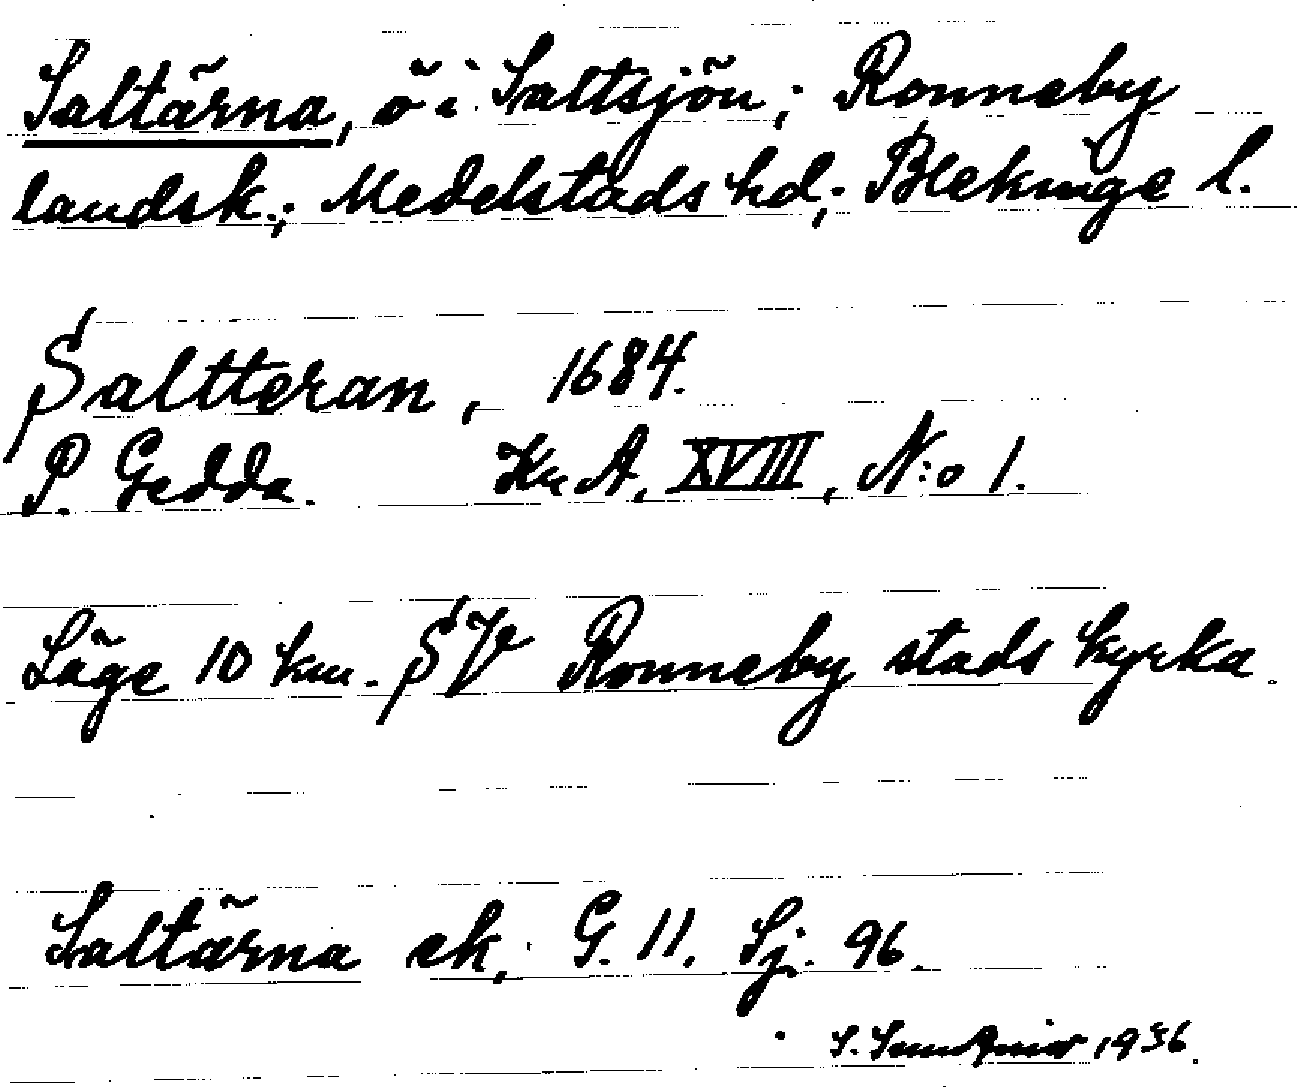 Saltärna, ö i Saltsjön; Ronneby
landsk.; Medelstads hd; Blekinge l.
Saltteran, 1684.
P. Gedda. Kr A, XVIII, N:o 1.
Läge 10 km. SV Ronneby stads kyrka.
Saltärna ek; G. 11. Sj. 96.
S. 1936.